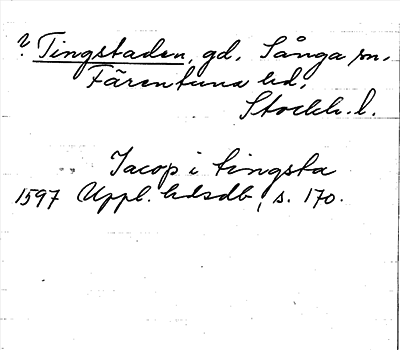 ? Tingstaden, gd. Sånga sn.
Färentuna hd.
Stockh. l.
Jacop i tingsta
1597 Uppl. hdsdb, s. 170.